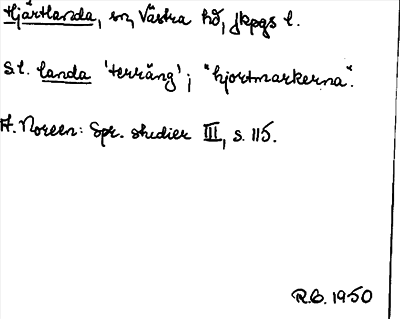 Hjärtlanda, sn, Västra hd, Jkpgs l.
S.l. landa 'terräng'; "hjortmarkerna".
A. Noreen: Spr. studier III, s. 115.
R.C. 1950